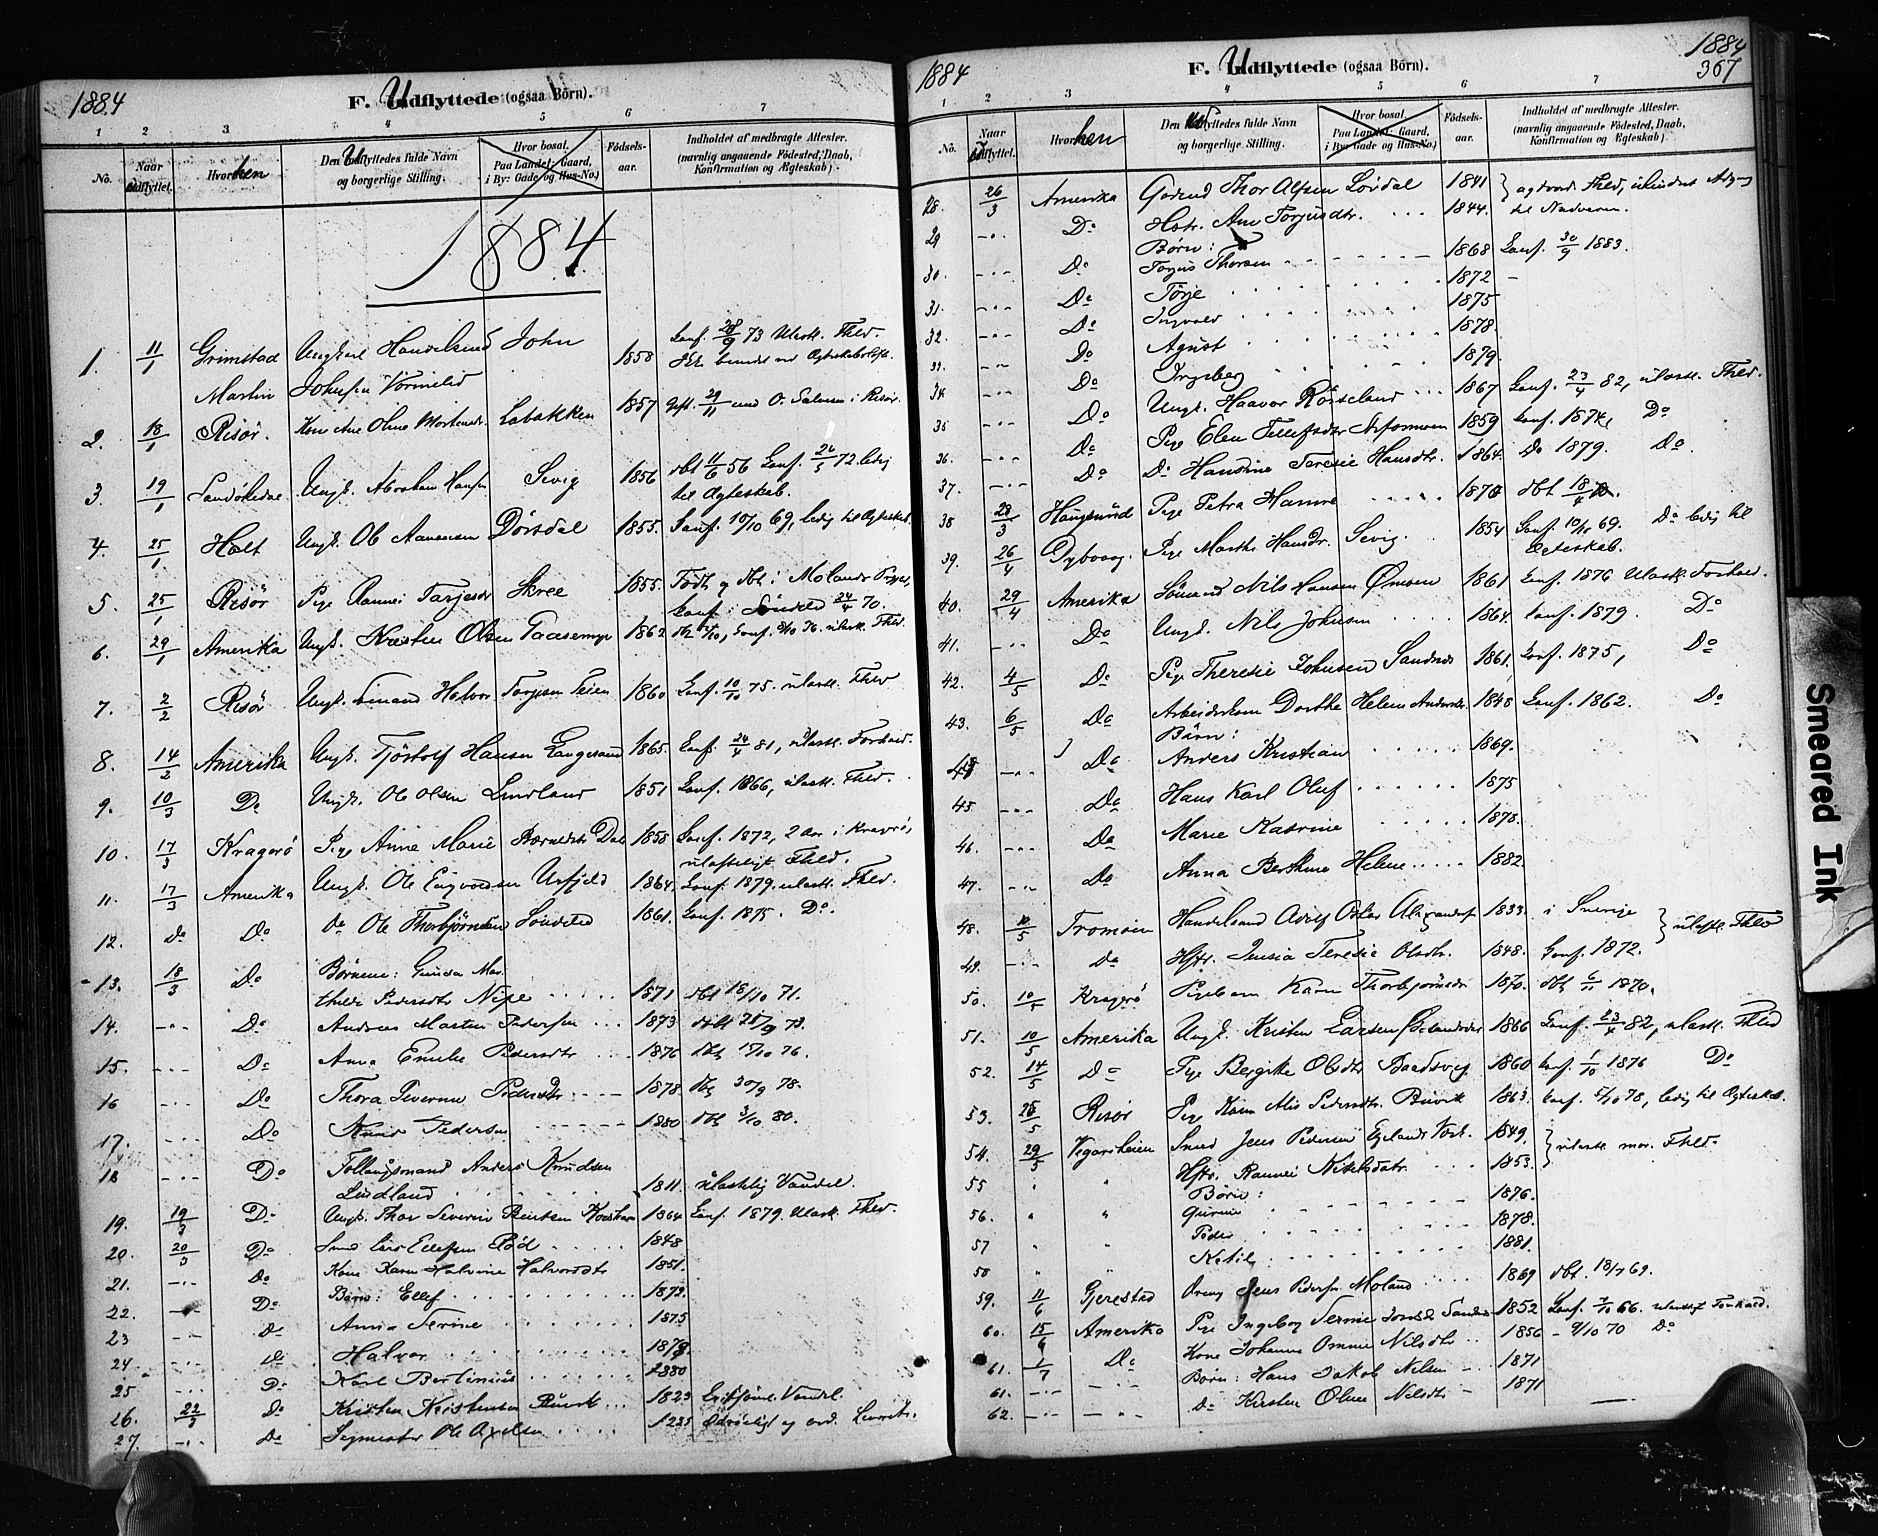 1884
F. Udflyttede (ogsaa Børn).
1 2 3 4 5 6 7
No.
Naar udflyttet.
Hvorhen
Den Udflyttedes fulde Navn og borgerlige Stilling.
Hvor bosat. Paa Landet: Gaard, i By: Gade og Hus-No.)
Fødselsaar.
Indholdet af medbragte Attester. (navnlig angaaende Fødested, Daab, Konfirmation og Ægteskab).
1884
1. 11/1 Grimstad Ungkarl Handelsmd John 1858 Conf. 28/9 73 Ulastl. Fhld.
Martin Johnsen
2. 18/1 Risør. Kone Ane Oline Mortensdr. Labakken 1857 Gift. 29/11 med O. Salvesen i Risør.
3. 19/1 Ungk. Abraham Hansen Sevig 1856 dbt 11/6 56 Conf. 26/5 72. ledig
til Ægteskab.
4. 25/1 Holt Ungk. Ole Aanensen Dørsdal 1855. Conf. 10/10 69, ledig til Ægteskab.
5. 25/1 Risør Pige Ramnei Tarjesdr Skree 1855. Født og dbt i Molands
Conf. i Søndeled 24/4 70.
6. 29/1 Amerika Ungk. Kristen Olsen 1862 ulastl. Fhld.
7. 2/2 Risør Ungk. Sømand Halvor Torjesen Feien 1860 Conf. 10/10 75. ulastl. Fhld
8. 14/2 Amerika Ungk. Tjøstolf Hansen Langesand 1865. Conf. 24/4 81, ulastl. Forhold.
9. 10/3 Do Ungk. Ole Olsen Lindland 1851 Conf. 1866, ulastl. Fhld.
10. 17/3 Kragerø Pige Anne Marie Dal 1858 Conf. 1872, 2 Aar i Kragerø,
ulasteligt Fhld.
11. 17/3 Amerika Ungk. Ole Urfjeld 1864. Conf. 1879. ulastl. Fhld.
12. Do Do do Ole Thorbjørnsen Søndeled 1861. Conf. 1875. Do.
13. 18/3 Do Børnene: Gunda Mat
hilde Pedersdtr Nipe 1871 dbt 18/10 71.
14. -"- Do Andreas Martin Pedersen 1873 dbt 21/9 73.
15. -"- Do Anna Emilie Pedersdtr 1876 dbt 15/10 76.
16 -"- Do Thora Severine Pedersdtr 1878 dbt 30/9 78.
17. -"- Do Knud Pedersen 1880 dbt 3/10 80.
18 -"- Do Føllaugsmand Anders Knudsen
Lindland 1811. ulastelig Vandel.
19. 19/3 Do Ungk. Thor Severin 1864 Conf. 1879. Ulastl. Fhld.
20. 20/3 Do Smed Lars Ellefsen Rød 1848
21. -"- Do Kone Karen Halvine Halvorsdtr 1851.
22. -"- Do Børn: Ellef 1872.
23 -"- Do Anna Terine 1875
24. -"- Do Halvor 1878
25 -"- Do Karl Bertinius 1880
26. 22/3 Do Kristen Kristensen 1823 Vandel
27. -"- Do Ole Axelsen
1884
1884
367
F. Udflyttede (ogsaa Børn).
1 2 3 4 5 6 7
No.
Naar udflyttet.
Hvorhen
Den Udflyttedes fulde Navn og borgerlige Stilling.
Hvor bosat. Paa Landet: Gaard, i By: Gade og Hus-No.)
Fødselsaar.
Indholdet af medbragte Attester. (navnlig angaaende Fødested, Daab, Konfirmation og Ægteskab).
28. 26/3 Amerika Gaardmd Thor Alfsen Løvdal 1841
29 -"- Do Hstr. Ane Torjusdtr. 1844. til Nadveren.
Børn:
30. -"- Do Torjus Thorsen 1868 Conf. 30/9 1883.
31. -"- Do Tørje 1872 -
32. -"- Do Ingvald 1875
33. -"- Do Agust 1878.
34 -"- Do Ingeborg 1879.
35 -"- Do Ungk. Haavor Røiseland 1867 Conf. 23/4 82, ulastl. Fhld.
36. -"- Do Pige Elen Tellefsdtr 1859 Conf. 1874, Do
37. -"- Do Do Hansine Teresie Hansdtr. 1864. Do 1879. Do
38 23/3 Haugesund Pige Petra Hanne 1870 dbt 18/4
39. 26/4 Dybvaag. Pige Marthe Hansdr. Sevig 1854 Conf. 69. Do ledig til
Ægteskab.
40. 29/4 Amerika Sømand Nils Hansen 1861 Conf. 1876 Ulastl. Forhold.
41. -"- Do Ungk. Nils Johnsen 1864. Conf. 1879. Do
42. 4/5 Do Pige Theresie Johnsen Sandnes 1861. Conf. 1875, Do
43. 6/5 Do Arbeiderkone Dorthe Helene Andersdr. 1848 Conf. 1862. Do
Børn:
44 -"- Do Anders Kristian 1869.
45. -"- Do Hans Karl Oluf 1875
46. -"- Do Marie Katrine 1878.
47. -"- Do Anna Berthine Helene 1882
48. 10/5 Tromøen Handelsmd Adolf Oskar Alexanders. 1833. i Sverige
ulastl. Fhld
49. -"- Do Hstr. Jensia Teresie Olsdtr. 1848. Conf. 1872.
50. 10/5 Kragerø Pigebarn Karen Thorbjørnsdr 1870. dbt 6/11 1870.
51. 10/5 Amerika Ungk. Kristen Larsen 1866 Conf. 23/4 82, ulastl. Fhld
52. 14/5 Do Pige Bergitte Olsdtr Baardsvig 1860 Conf. 1/10 1876 Do
53. 25/5 Risør Pige Karen Alis Pedersdtr. Buvik 1863. Conf. 5/10 78, ledig til Ægteskab.
54. 29/5 Vegardsheien Smed Jens Pedersen 1849. ulastl. mor. Fhld.
55 " " Hstr. Ramnei Nikelsdatr. 1853.
Børn:
56. " " Gurine 1876.
57 " " Peder 1878.
58 " " Ketil 1881.
59. 11/6 Gjerestad Dreng Jens Pedersen Moland 1869 dbt. 18/7 69.
60. 15/6 Amerika Pige Ingeborg Terine Sandnes 1852 Conf. 7/10 66. ulasteligt Forhold.
61. 1/7 Do Kone Johanne Omine Nilsdtr 1856 - 9/10 70 Do
61. -"- -"- Børn: Hans Jakob Nilsen 1871
62. -"- -"- Do Kirsten Oline Nilsdtr - 1871
Smeared Ink